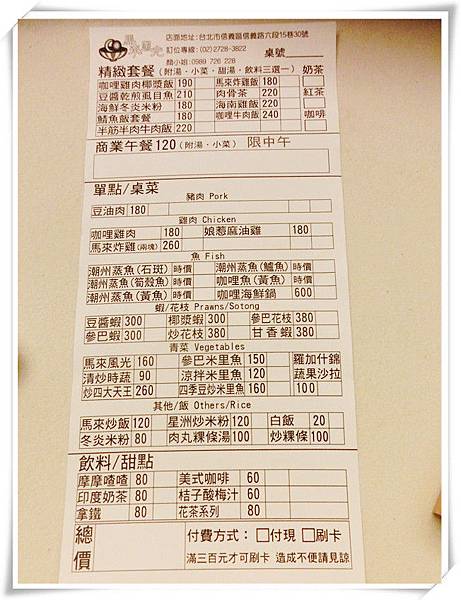 馬來風光
店面地址:台北市信義區信義路六段15巷30號
訂位專線:(02)2728-3822
顏小姐:0989 726 228
桌號
精緻套餐 (附湯、小菜、甜湯、飲料三選一) 奶茶
咖哩雞肉椰漿飯 190 馬來炸雞飯 180
豆醬乾煎虱目魚 210 肉骨茶 220 紅茶
海鮮冬炎米粉 180 海南雞飯 220
鯖魚飯套餐 180 咖哩牛肉飯 240 咖啡
半筋半肉牛肉飯 220
商業午餐120 (附湯、小菜) 限中午
單點/桌菜
豬肉 Pork
豆油肉 180
雞肉 Chicken
咖哩雞肉 180 娘惹麻油雞 180
馬來炸雞(兩塊) 260
魚 Fish
潮州蒸魚(石斑) 時價 潮州蒸魚(鱸魚) 時價
潮州蒸魚(筍殼魚) 時價 咖哩魚(黃魚) 時價
潮州蒸魚(黃魚) 時價 咖哩海鮮鍋 600
蝦/花枝 Prawns/Sotong
豆醬蝦 300 椰漿蝦 300 參巴花枝 380
參巴蝦 300 炒花枝 380 甘香蝦 380
青菜 Vegetables
馬來風光 160 參巴米里魚 150 羅加什錦
清炒時蔬 90 涼拌米里魚 120 蔬果沙拉
炒四大天王 260 四季豆炒米里魚 160 100
其他/飯 Others/Rice
馬來炒飯 120 星洲炒米粉 120 白飯 20
冬炎米粉 80 肉丸粿條湯 100 炒粿條 100
飲料/甜點
摩摩喳喳 80 美式咖啡 60
印度奶茶 80 桔子酸梅汁 60
拿鐵 80 花茶系列 80
總價 付費方式: □付現 □刷卡
滿三百元才可刷卡 造成不便請見諒